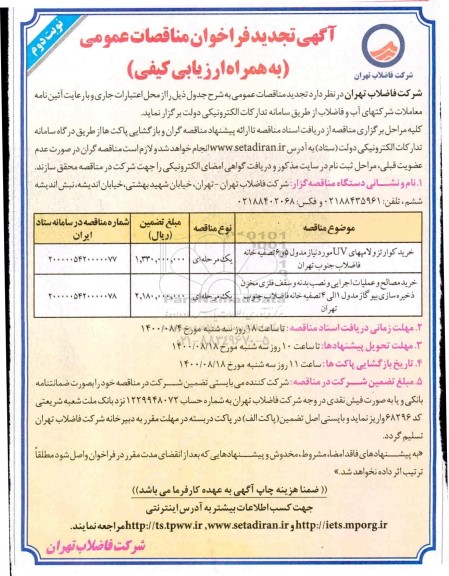 نوبت دوم
آگهی تجدید فراخوان مناقصات عمومی
(به همراه ارزیابی کیفی)
شرکت فاضلاب تهران
شرکت فاضلاب تهران در نظر دارد تجدید مناقصات عمومی به شرح جدول ذیل را از محل اعتبارات جاری و با رعایت آئین نامه
معاملات شرکتهای آب و فاضلاب از طریق سامانه تدارکات الکترونیکی دولت برگزار نماید.
کلیه مراحل برگزاری مناقصه از دریافت اسناد مناقصه تا ارائه پیشنهاد مناقصه گران و بازگشایی پاکت ها از طریق درگاه سامانه
تدارکات الکترونیکی دولت (ستاد) به آدرس www.setadiran.ir انجام خواهد شد و لازم است مناقصه گران در صورت عدم
عضویت قبلی، مراحل ثبت نام در سایت مذکور و دریافت گواهی امضای الکترونیکی را جهت شرکت در مناقصه محقق سازند.
۱. نام و نشانی دستگاه مناقصه گزار: شرکت فاضلاب تهران - تهران، خیابان شهید بهشتی، خیابان اندیشه، نبش اندیشه
ششم، تلفن: ۰۲۱۸۸۴۳۵۹۶۱ و فکس: ۰۲۱۸۸۴۰۲۰۶۸
موضوع مناقصه
نوع مناقصه
مبلغ تضمین (ریال)
شماره مناقصه در سامانه ستاد ایران
خرید کوارتز و لامپهای UV مورد نیاز مدول ۵ و ۶ تصفیه خانه فاضلاب جنوب تهران
یک مرحله‌ای
۱,۳۳۰,۰۰۰,۰۰۰
۲۰۰۰۰۰۵۴۲۰۰۰۰۰۷۷
خرید مصالح و عملیات اجرایی و نصب بدنه و سقف فلزی مخزن ذخیره سازی بیوگاز مدول ۱ الی ۴ تصفیه خانه فاضلاب جنوب تهران
یک مرحله‌ای
۲,۱۸۰,۰۰۰,۰۰۰
۲۰۰۰۰۰۵۴۲۰۰۰۰۰۷۸
۲. مهلت زمانی دریافت اسناد مناقصه: تا ساعت ۱۸ روز سه شنبه مورخ ۱۴۰۰/۰۸/۴
۳. مهلت تحویل پیشنهادها: تا ساعت ۱۰ روز سه شنبه مورخ ۱۴۰۰/۰۸/۱۸
۴. تاریخ بازگشایی پاکت ها: ساعت ۱۱ روز سه شنبه مورخ ۱۴۰۰/۰۸/۱۸
۵. مبلغ تضمین شرکت در مناقصه: شرکت کننده می بایستی تضمین شرکت در مناقصه خود را بصورت ضمانتنامه
بانکی و یا به صورت فیش نقدی در وجه شرکت فاضلاب تهران به شماره حساب ۱۲۲۹۹۴۸۰۷۲ نزد بانک ملت شعبه شریعتی
کد ۶۸۲۹۶ واریز نماید و بایستی اصل تضمین (پاکت الف) در پاکت دربسته در مهلت مقرر به دبیرخانه شرکت فاضلاب تهران
تسلیم گردد.
«به پیشنهادهای فاقد امضا، مشروط، مخدوش و پیشنهادهایی که بعد از انقضای مدت مقرر در فراخوان واصل شود مطلقاً
ترتیب اثر داده نخواهد شد.»
(( ضمنا هزینه چاپ آگهی به عهده کارفرما می باشد))
جهت کسب اطلاعات بیشتر به آدرس اینترنتی
http://iets.mporg.ir و http://ts.tpww.ir ,www.setadiran.ir مراجعه نمایند.
شرکت فاضلاب تهران